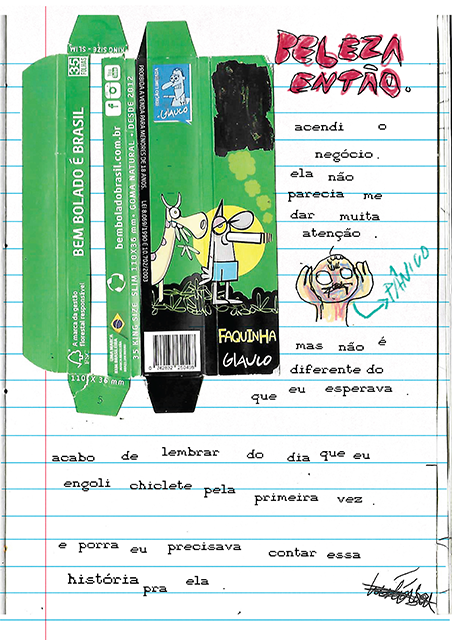 BELÊZA
ENTÃO.
acendi o
negócio.
ela não
parecia me
dar muita
atenção.
PÂNICO
mas não é
diferente do
que eu esperava
acabo de lembrar do dia que eu
engoli chiclete pela primeira vez.
e porra eu precisava contar essa
história pra ela.
KING SIZE - SLIM
BEM BOLADO É BRASIL
A marca da gestão
florestal responsável
110 X 36 mm
5
bemboladobrasil.com.br
35 KING SIZE SLIM 110X36 mm • GOMA NATURAL • DESDE 2012
PROIBIDA A VENDA PARA MENORES DE 18 ANOS.
GLAUCO
FAQUINHA
GLAUCO